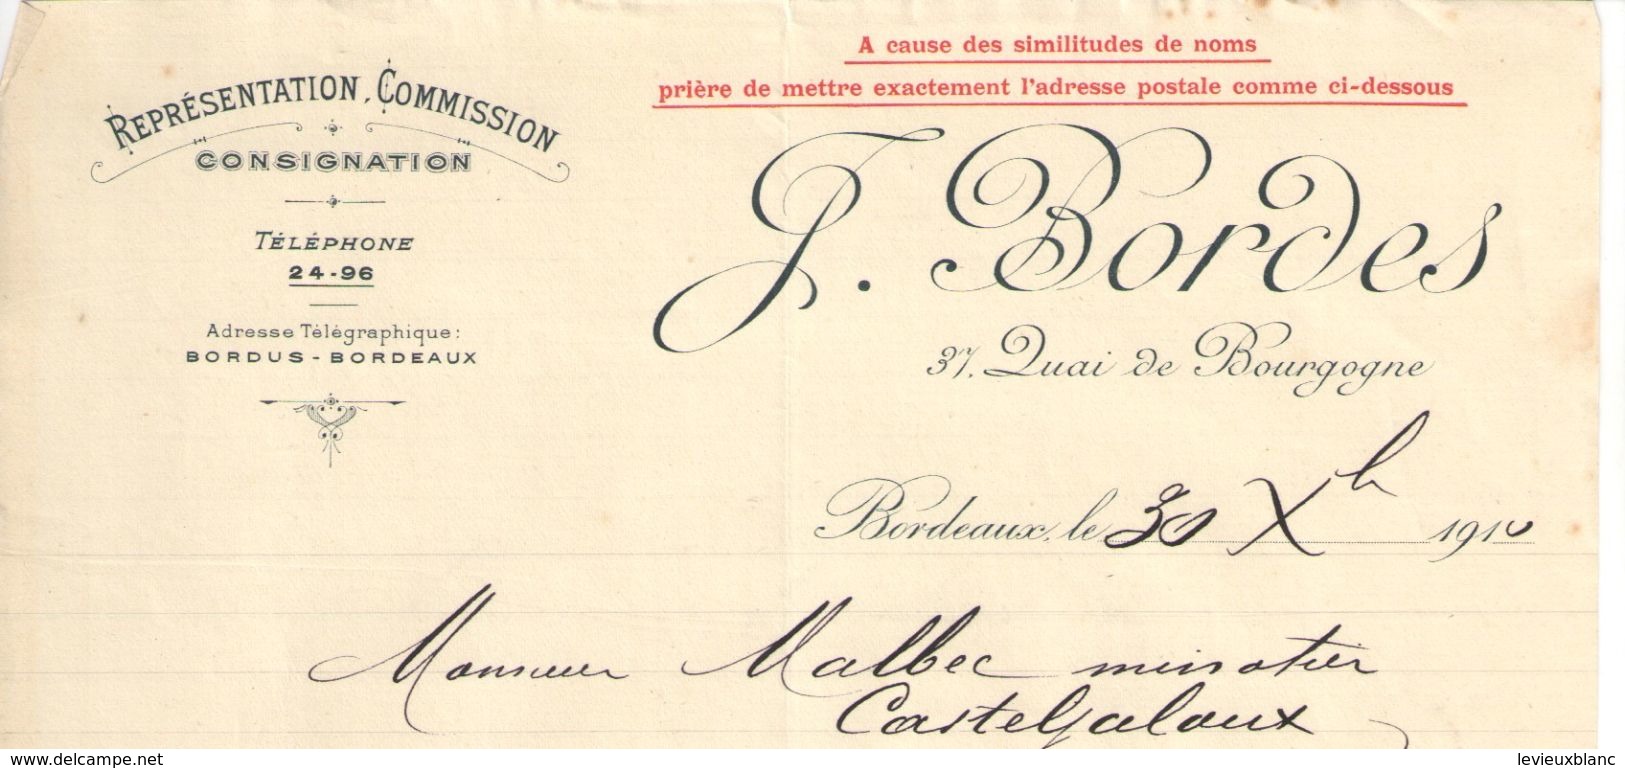 A cause des similitudes de noms
prière de mettre exactement l'adresse postale comme ci-dessous
REPRÉSENTATION, COMMISSION
CONSIGNATION
TÉLÉPHONE
24-96
Adresse Télégraphique:
BORDUS - BORDEAUX
J. Bordes
37, Quai de Bourgogne
Bordeaux, le 30 Xb 1910
Monsieur Malbec minotier
Casteljaloux
www.delcampe.net
levieuxblanc